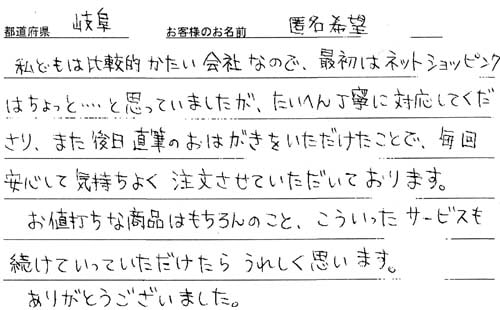 都道府県 岐阜 お客様のお名前 匿名希望
私どもは比較的かたい会社なので、最初はネットショッピング
はちょっと‥‥と思っていましたが、たいへん丁寧に対応してくだ
さり、また後日直筆のおはがきをいただけたことで、毎回
安心して気持ちよく注文させていただいております。
お値打ちな商品はもちろんのこと、こういったサービスも
続けていっていただけたらうれしく思います。
ありがとうございました。